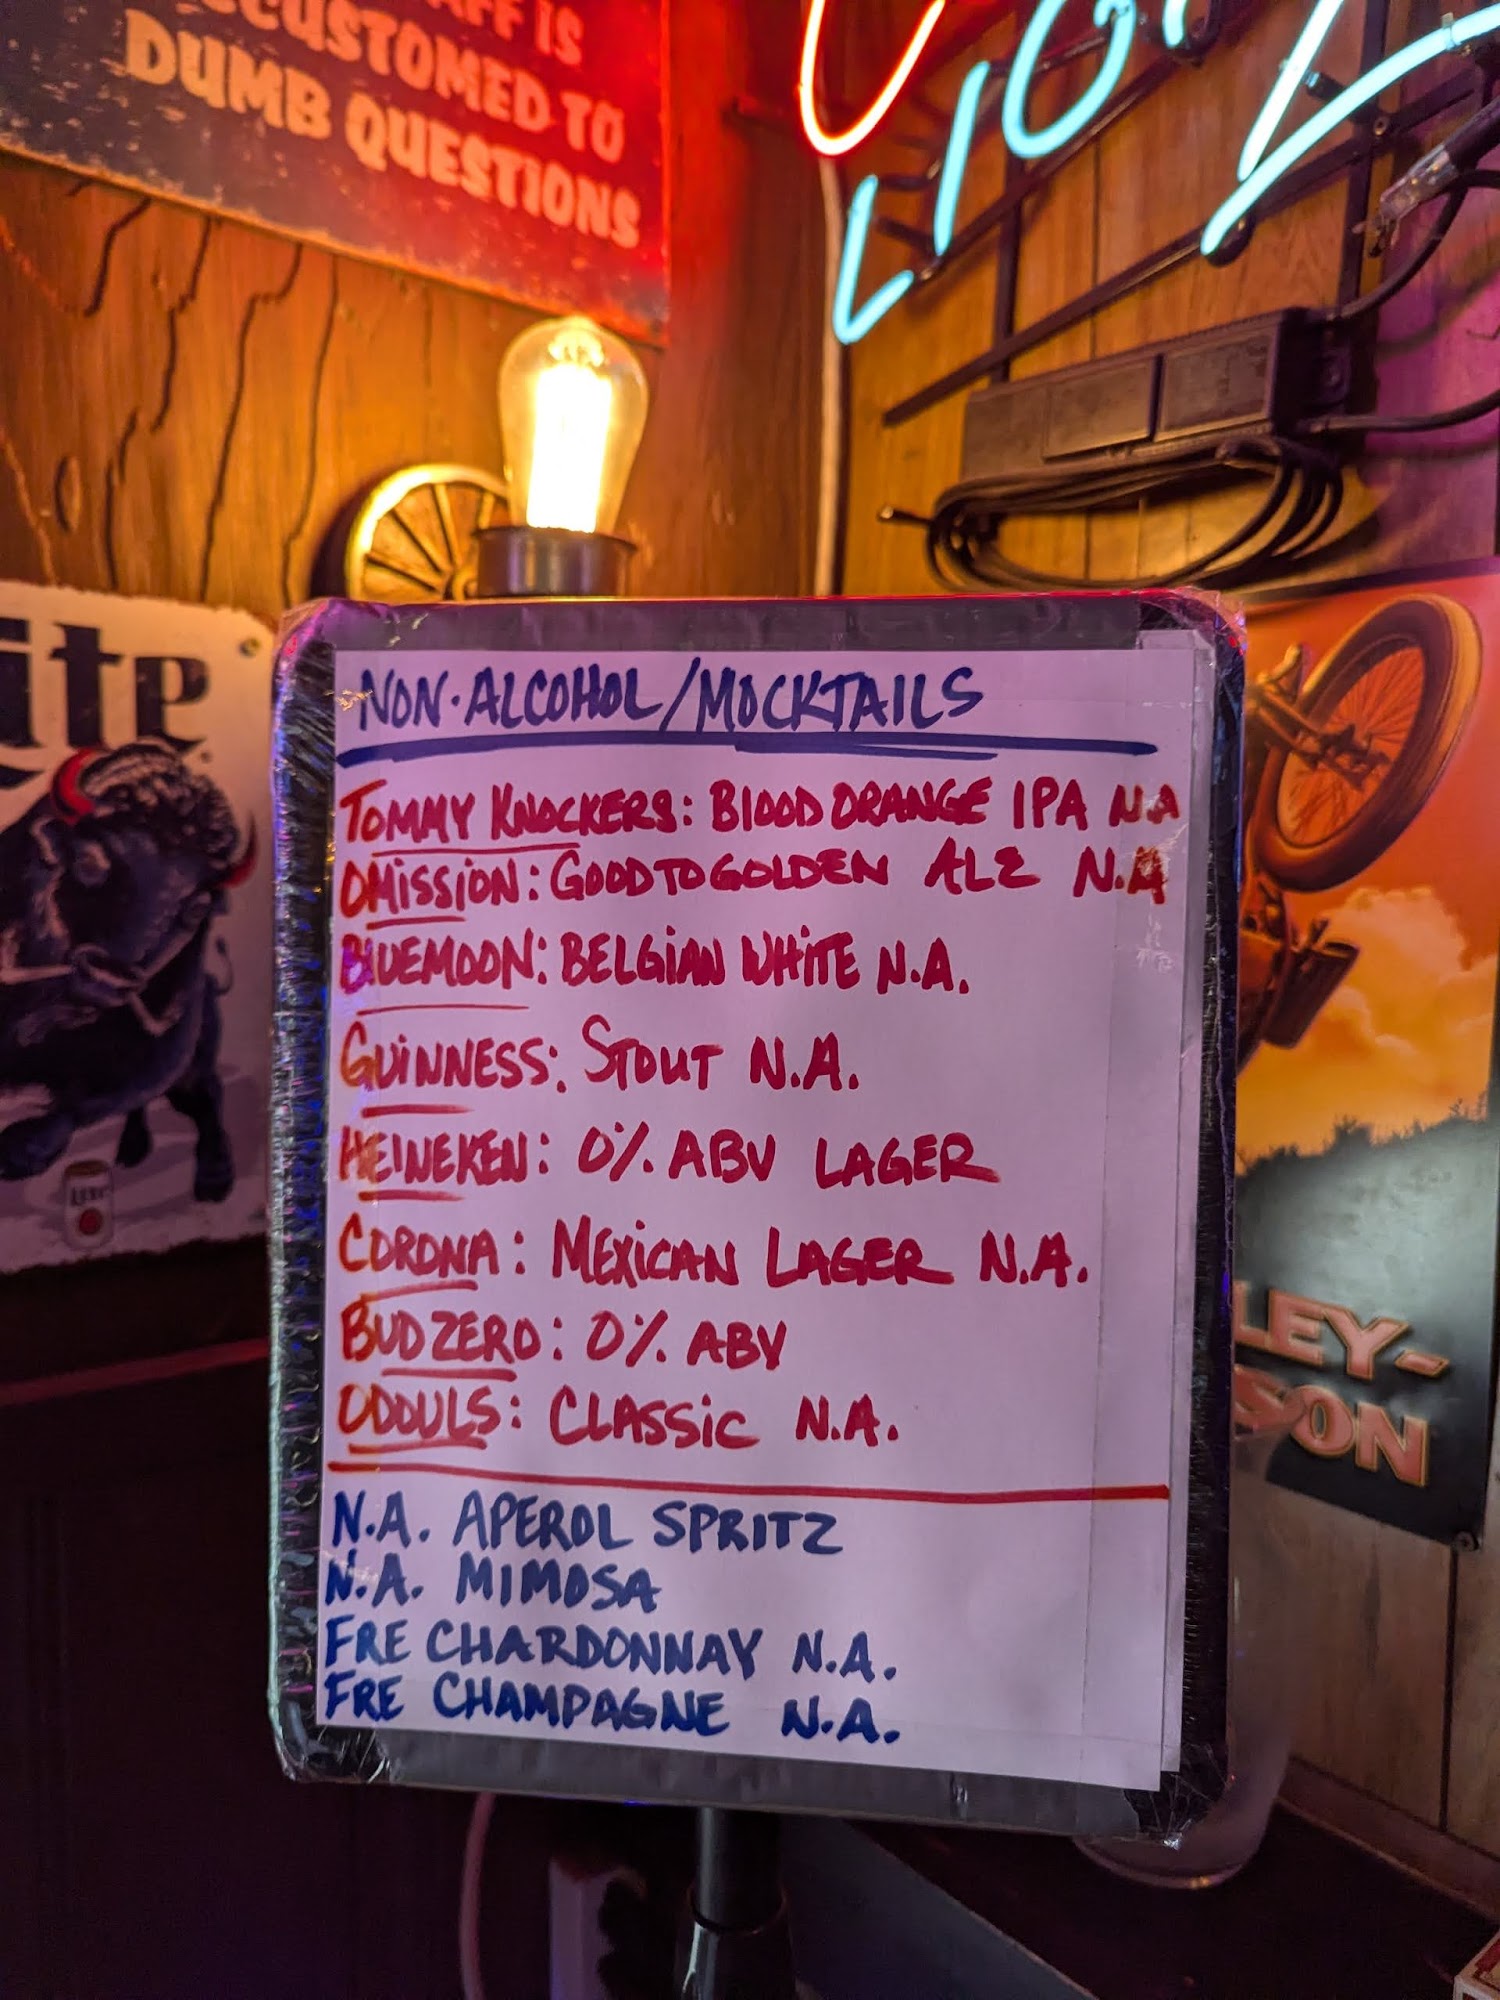 AFF IS
CCUSTOMED TO
DUMB QUESTIONS
LIQ
ite
NON-ALCOHOL/MOCKTAILS
TOMMY KNOCKERS: BLOOD ORANGE IPA N.A
OMISSION: GOOD TO GOLDEN ALE N.A
BLUEMOON: BELGIAN WHITE N.A.
GUINNESS: STOUT N.A.
HEINEKEN: 0% ABV LAGER
CORONA: MEXICAN LAGER N.A.
BUD ZERO: 0% ABV
ODDULS: CLASSIC N.A.
N.A. APEROL SPRITZ
N.A. MIMOSA
FRE CHARDONNAY N.A.
FRE CHAMPAGNE N.A.
LEY-
SON